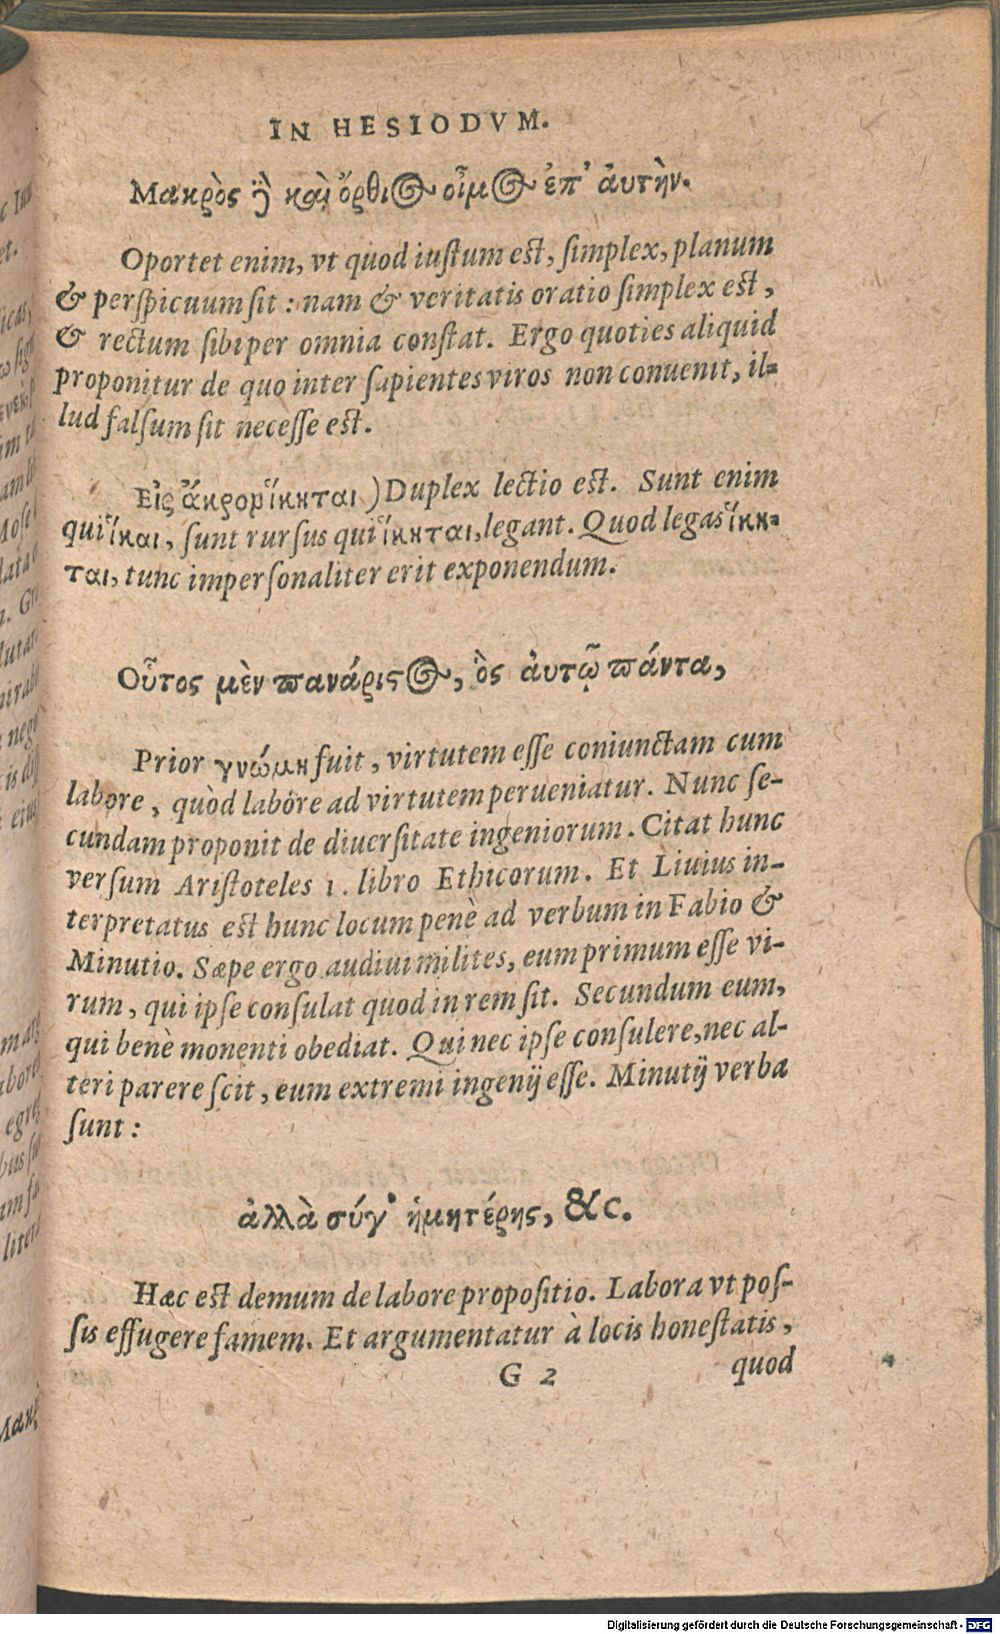 IN HESIODVM.
Μακρὸς ἢ καὶ ὄρθιος οἶμος ἐπ' ἀυτὴν.
Oportet enim, vt quod iustum est, simplex, planum
& perspicuum sit: nam & veritatis oratio simplex est,
& rectum sibi per omnia constat. Ergo quoties aliquid
proponitur de quo inter sapientes viros non conuenit, il=
lud falsum sit necesse est.
Εἰς ἄκρον ἵκηται ) Duplex lectio est. Sunt enim
qui ἵκαι, sunt rursus qui ἵκηται, legant. Quod legas ἵκη=
ται, tunc impersonaliter erit exponendum.
Οὗτος μὲν πανάριστος, ὃς ἀυτῷ πάντα,
Prior γνώμη fuit, virtutem esse coniunctam cum
labore, quòd labore ad virtutem perueniatur. Nunc se-
cundam proponit de diuersitate ingeniorum. Citat hunc
versum Aristoteles 1. libro Ethicorum. Et Liuius in-
terpretatus est hunc locum penè ad verbum in Fabio &
Minutio. Sæpe ergo audiui milites, eum primum esse vi-
rum, qui ipse consulat quod in rem sit. Secundum eum,
qui benè monenti obediat. Qui nec ipse consulere, nec al-
teri parere scit, eum extremi ingenij esse. Minutij verba
sunt:
ἀλλὰ σύγ' ἡμητέρης, &c.
Hæc est demum de labore propositio. Labora vt pos-
sis effugere famem. Et argumentatur à locis honestatis,
G 2 quod
Digitalisierung gefördert durch die Deutsche Forschungsgemeinschaft - DFG